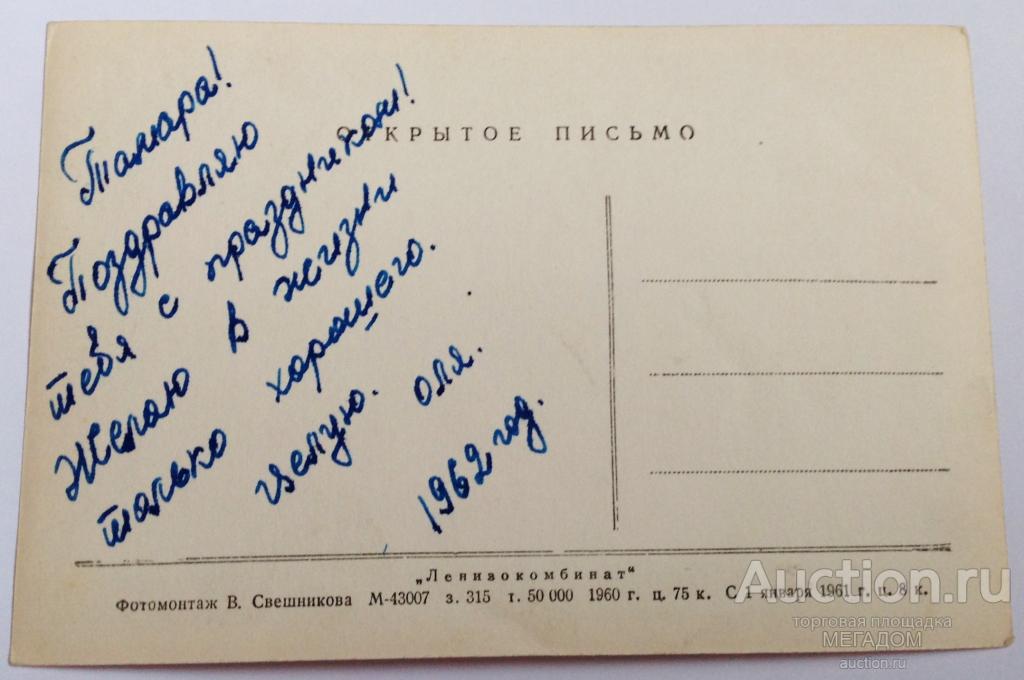 ОТКРЫТОЕ ПИСЬМО
Тамара!
Поздравляю
тебя с праздником!
Желаю в жизни
только хорошего.
целую. оля.
1962 год.
„Ленизокомбинат“
Фотомонтаж В. Свешникова М-43007 з. 315 т. 50 000 1960 г. ц. 75 к. С 1 января 1961 г. ц. 8 к.
Auction.ru
торговая площадка
МЕГАДОМ
auction.ru